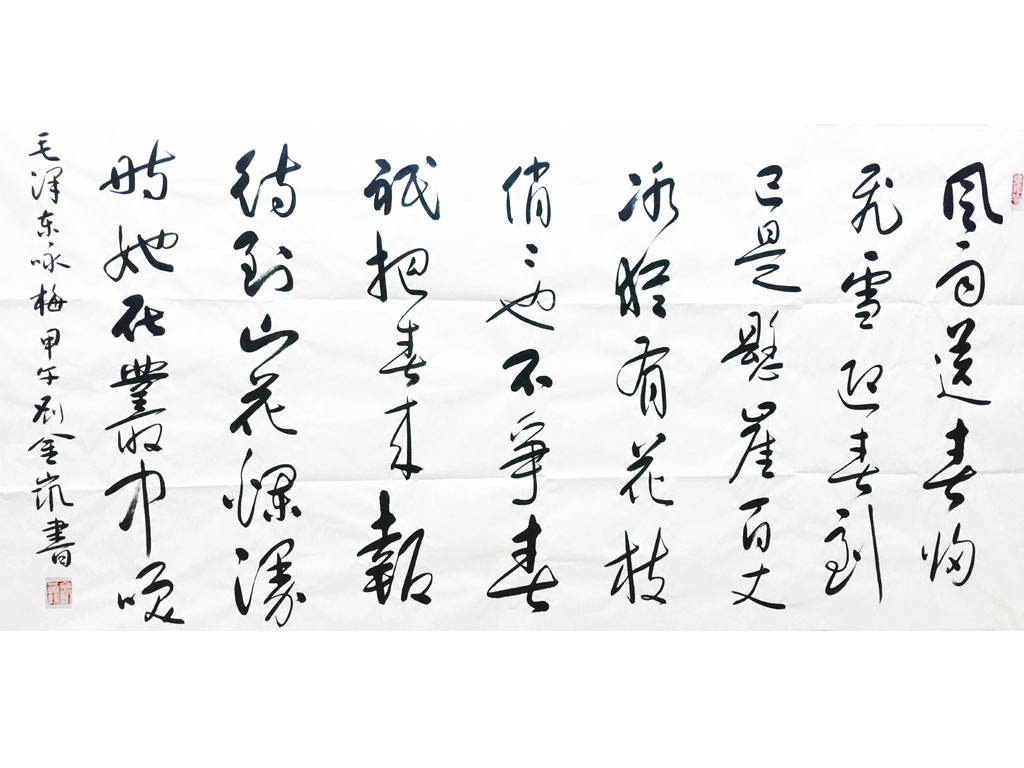 風雨送春歸
飛雪迎春到
已是懸崖百丈
冰猶有花枝
俏〻也不爭春
祇把春來報
待到山花爛漫
時她在叢中咲
毛澤东咏梅甲午劉金嵐書